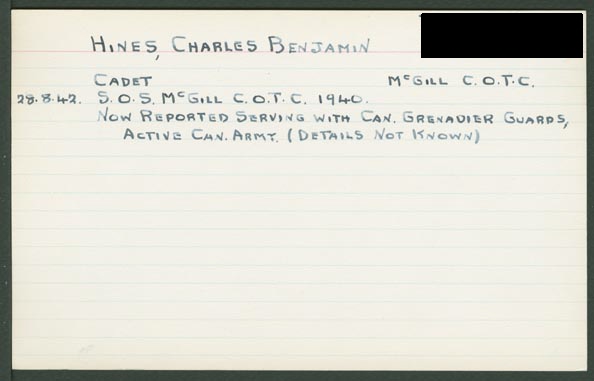 HINES, CHARLES BENJAMIN
CADET McGILL C.O.T.C.
28.8.42. S.O.S. McGILL C.O.T.C. 1940.
NOW REPORTED SERVING WITH CAN. GRENADIER GUARDS,
ACTIVE CAN. ARMY. (DETAILS NOT KNOWN)